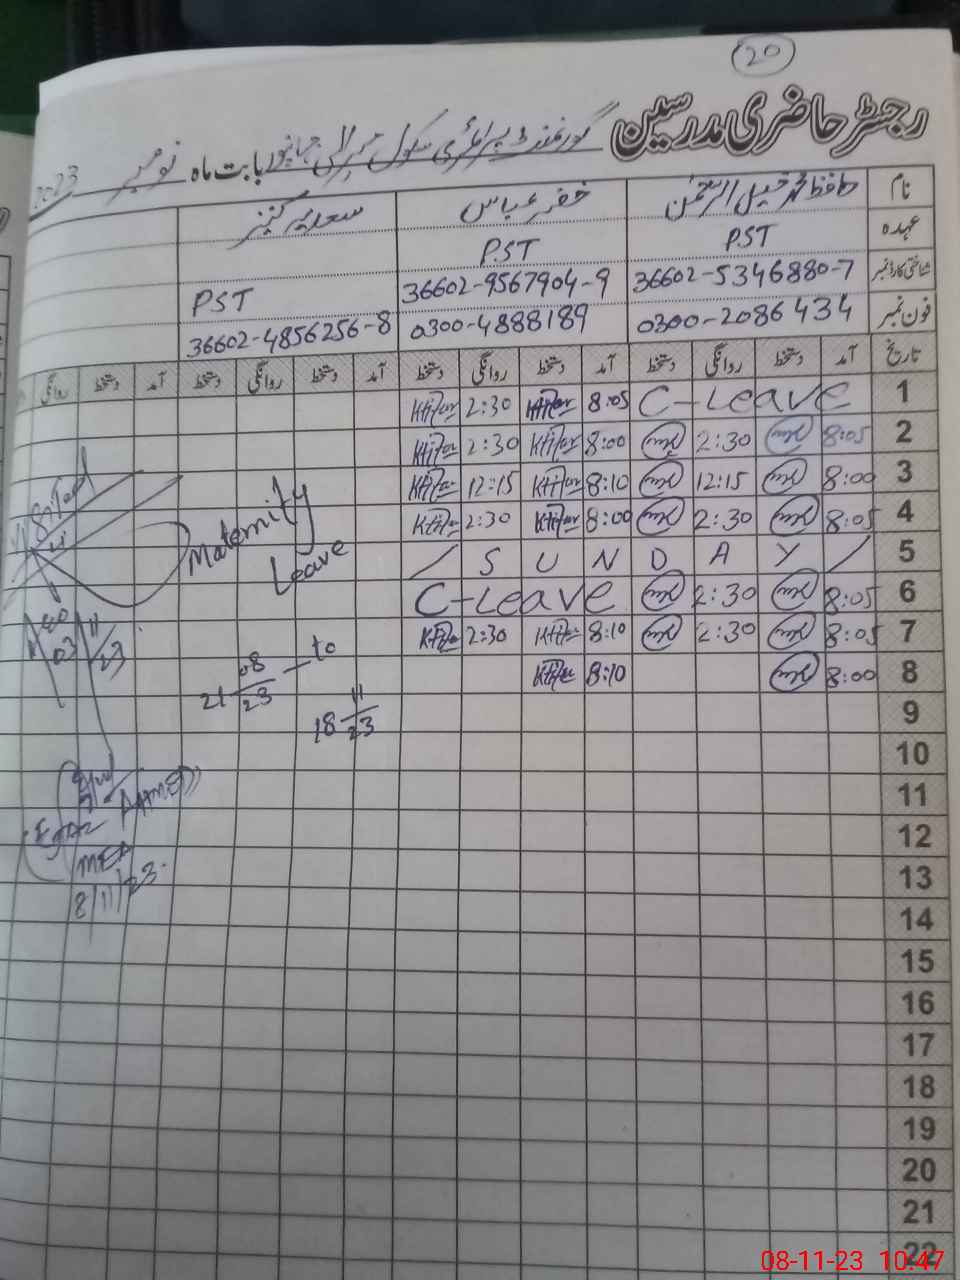 20
رجسٹر حاضری مدرسین گورنمنٹ پرائمری سکول بابت ماہ نومبر 2023
نام حافظ محمد خلیل الرحمٰن خضر عباس سعدیہ کنیز
عہدہ PST PST
شناختی کارڈ نمبر 36602-5346880-7 36602-9567904-9 PST
فون نمبر 0300-2086434 0300-4888189 36602-4856256-8
تاریخ آمد دستخط روانگی دستخط آمد دستخط روانگی دستخط آمد دستخط روانگی دستخط آمد دستخط روانگی
1 C-Leave 8:05 2:30
2 8:05 2:30 8:00 2:30
3 8:00 12:15 8:10 12:15
4 8:05 2:30 8:00 2:30
5 / S U N D A Y /
6 8:05 2:30 C-Leave
7 8:05 2:30 8:10 2:30
8 8:00 8:10
Maternity
Leave
21 08/23 — to
18 11/23
9
10
11
12
13
14
15
16
17
18
19
20
21
22
Visited
03/11/23
AHMED
MEA
8/11/23
08-11-23 10:47